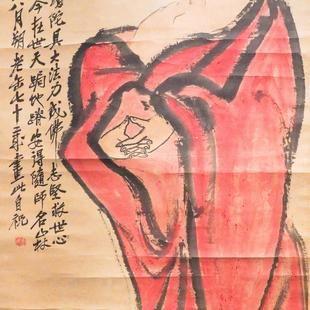 陀具大法力成佛志堅救世心
今在世天跼地蹐安得隨師名山林
八月朔老缶七十歲畫此自祝